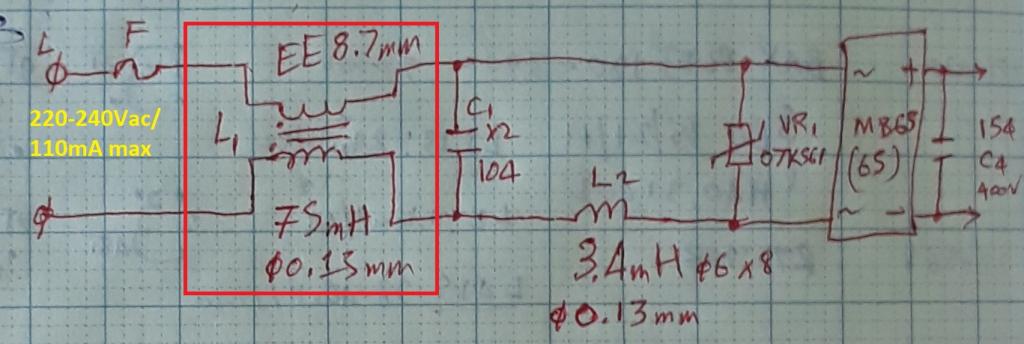 L F
EE 8.7mm
220-240Vac/
110mA max
L1
75mH
φ0.13mm
C1
X2
104
L2
3.4mH φ6x8
φ0.13mm
VR1
07K561
~ +
MB6S
(6S)
~ -
154
C4
400V